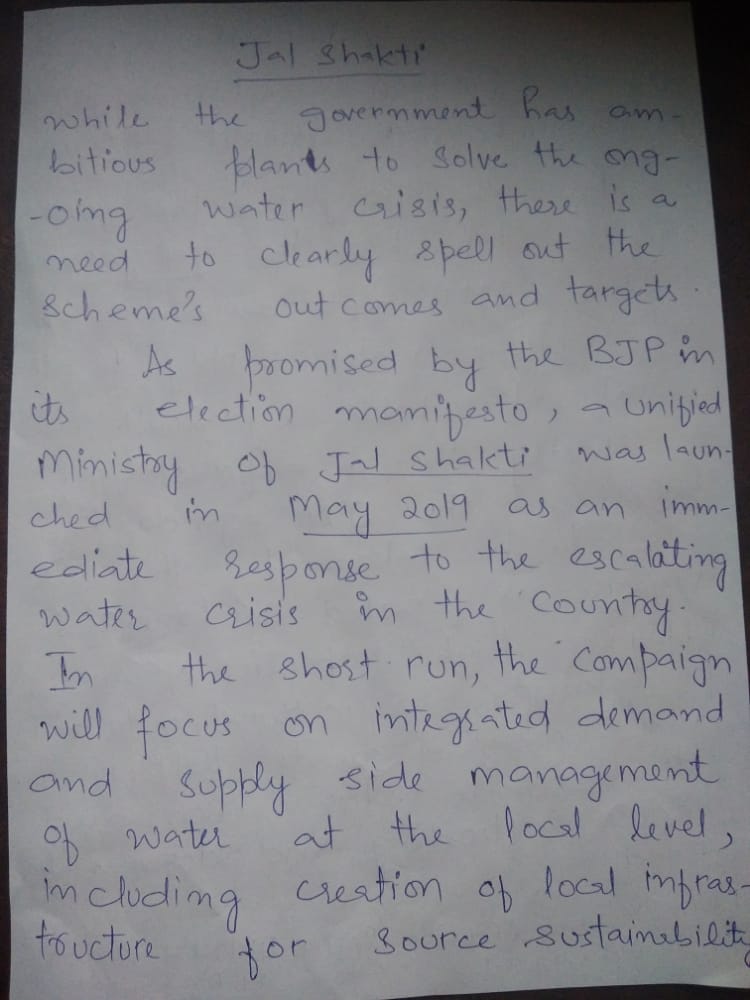 Jal Shakti
while the government has am-
bitious plants to solve the ong-
-oing water crisis, there is a
need to clearly spell out the
scheme's outcomes and targets.
As promised by the BJP in
its election manifesto, a unified
Ministry of Jal Shakti was laun-
ched in May 2019 as an imm-
ediate response to the escalating
water crisis in the country.
In the short run, the compaign
will focus on integrated demand
and supply side management
of water at the local level,
including creation of local infras-
tructure for source sustainability